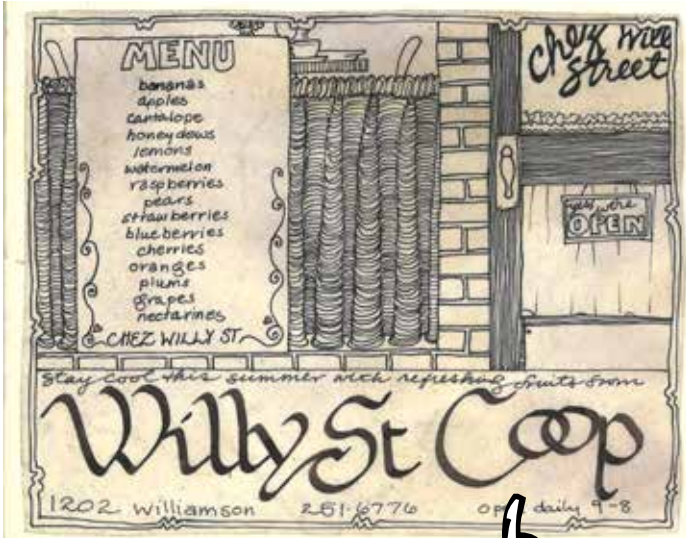 MENU
bananas
apples
cantalope
honeydews
lemons
watermelon
raspberries
pears
strawberries
blueberries
cherries
oranges
plums
grapes
nectarines
CHEZ WILLY ST.
Chez Will
Street
yes, we're
OPEN
stay cool this summer with refreshing fruits from
Willy St Coop
1202 Williamson 251-6776 daily 9-8